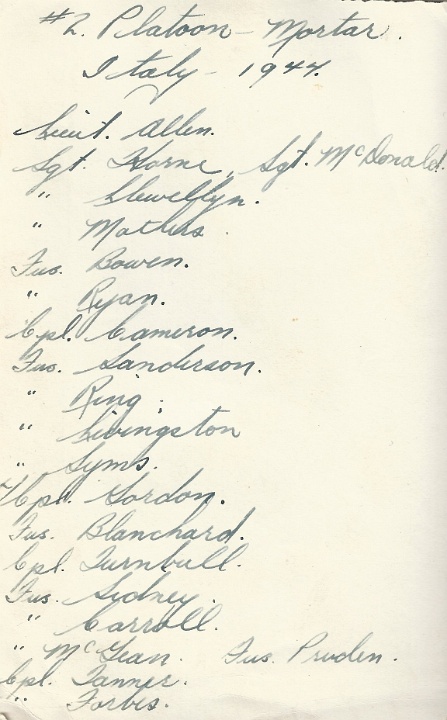 #2. Platoon - Mortar.
Italy - 1944.
Lieut. Allen.
Sgt. Horne, Sgt. McDonald.
" Llewellyn.
" Mathers.
Fus. Bowen.
" Ryan.
Cpl. Cameron.
Fus. Sanderson.
" Ring.
" Livingston
" Syms.
Cpl. Gordon.
Fus. Blanchard.
Cpl. Turnbull.
Fus. Sidney.
" Carroll.
" McGean. Fus. Pruden.
Cpl. Tanner.
" Forbes.